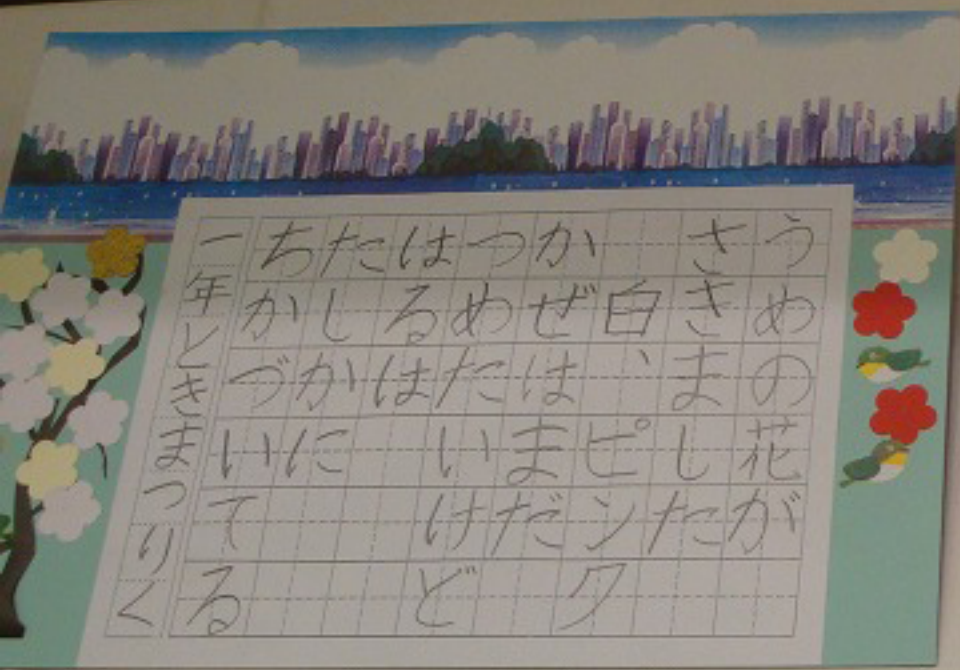 うめの花が
さきました
白、ピンク
かぜはまだ
つめたいけど
はるは
たしかに
ちかづいてる
一年ときまつりく